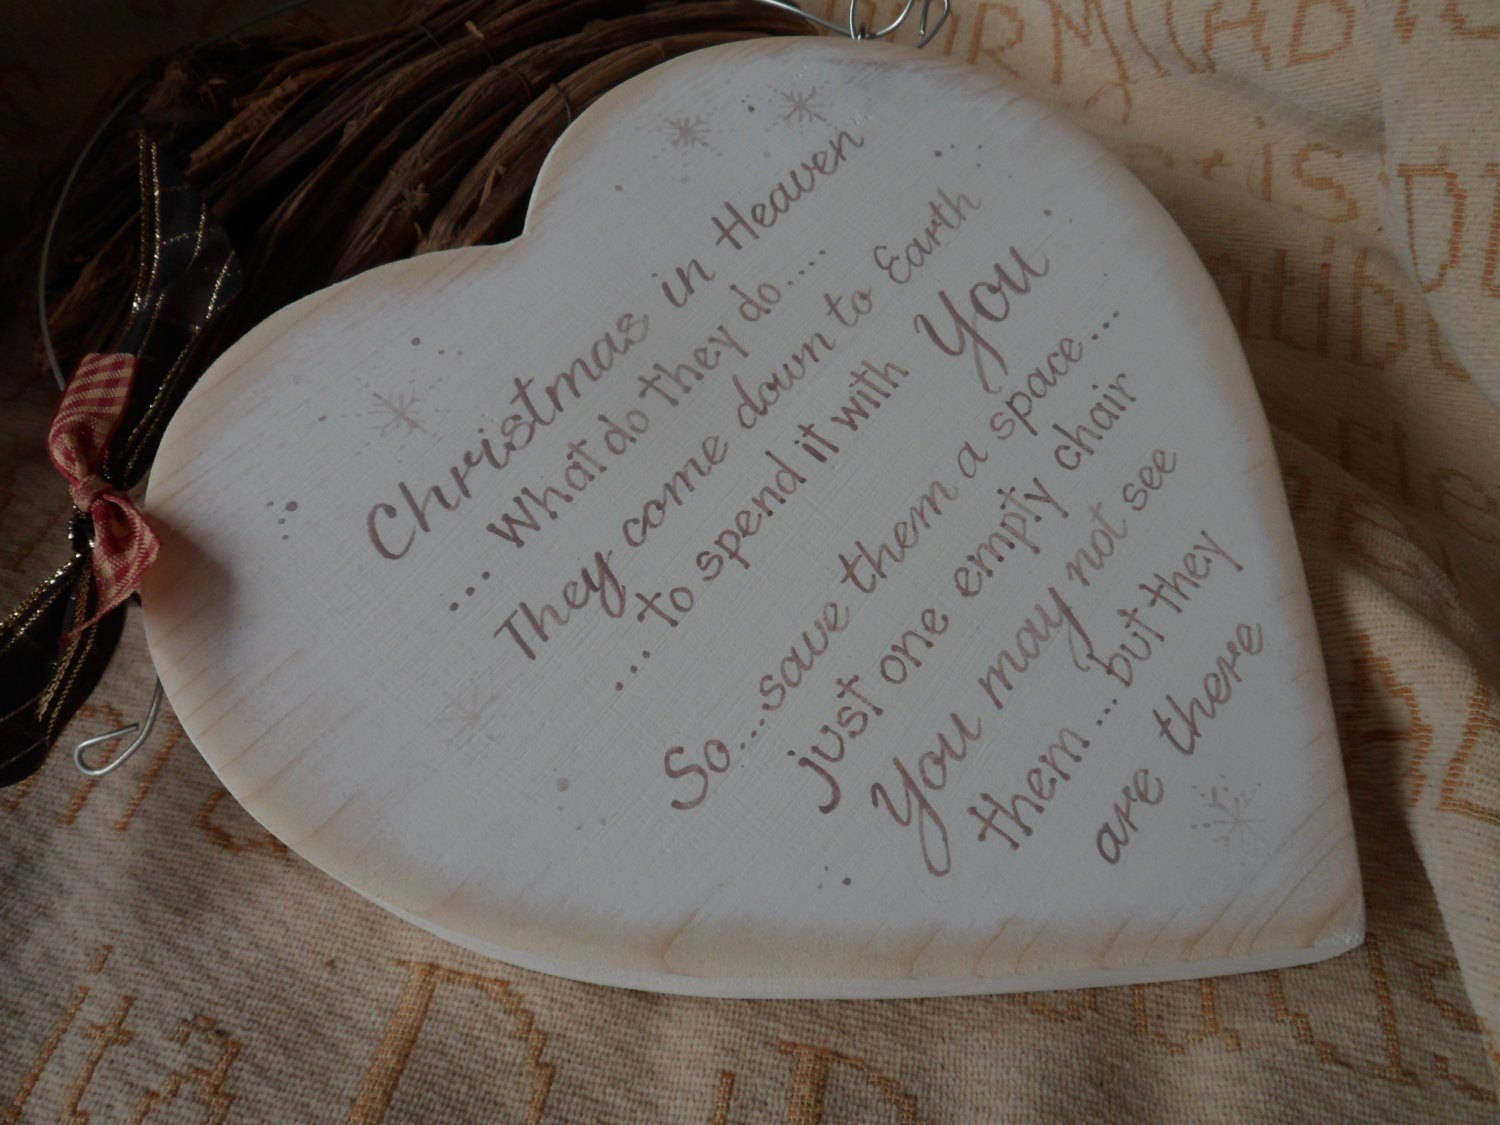 Christmas in Heaven
... What do they do....
They come down to Earth
... to spend it with You
So...save them a space...
just one empty chair
You may not see
them... but they
are there